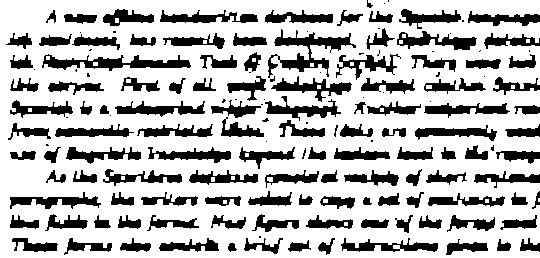 A new offline handwritten database for the Spanish language
ish sentences, has recently been developed: the Spartacus databas
ish Restricted-domain Task of Cursive Script). There were two
this corpus. First of all, most databases do not contain Spani
Spanish is a widespread major language. Another important rea
from semantic-restricted tasks. These tasks are commonly used
use of linguistic knowledge beyond the lexicon level in the recog
As the Spartacus database consisted mainly of short sentence
paragraphs, the writers were asked to copy a set of sentences in f
line fields in the forms. Next figure shows one of the forms used
These forms also contain a brief set of instructions given to the